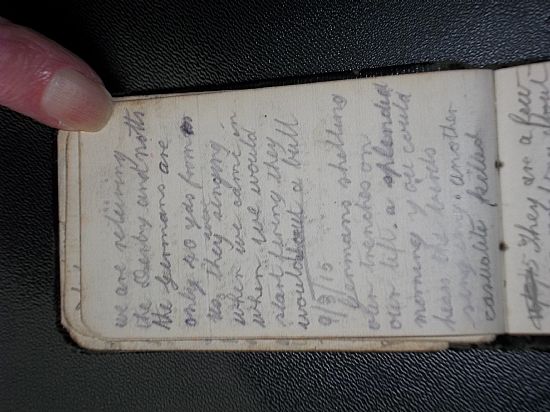 we are relieving
the Derby and notts
the Germans are
only 40 yds from
us they singing
when we came in
when we would
start firing they
would shout a bull
9/5/15
Germans shelling
our trenches on
our left. a splended
morning you could
hear the birds
sing. another
casualite killed
They are a few